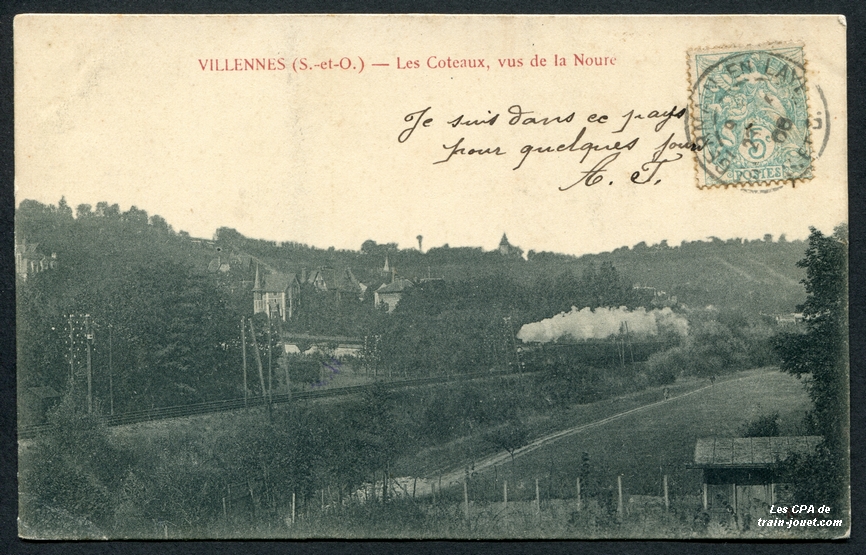 VILLENNES (S.-et-O.) — Les Coteaux, vus de la Noure
Je suis dans ce pays
pour quelques jours
A. T.
EN LAYE
5
POSTES
Les CPA de
train-jouet.com